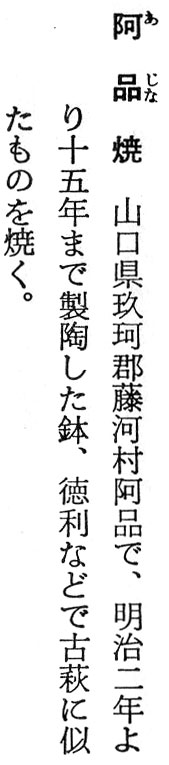 阿品焼 山口県玖珂郡藤河村阿品で、明治二年よ
り十五年まで製陶した鉢、徳利などで古萩に似
たものを焼く。
あじな